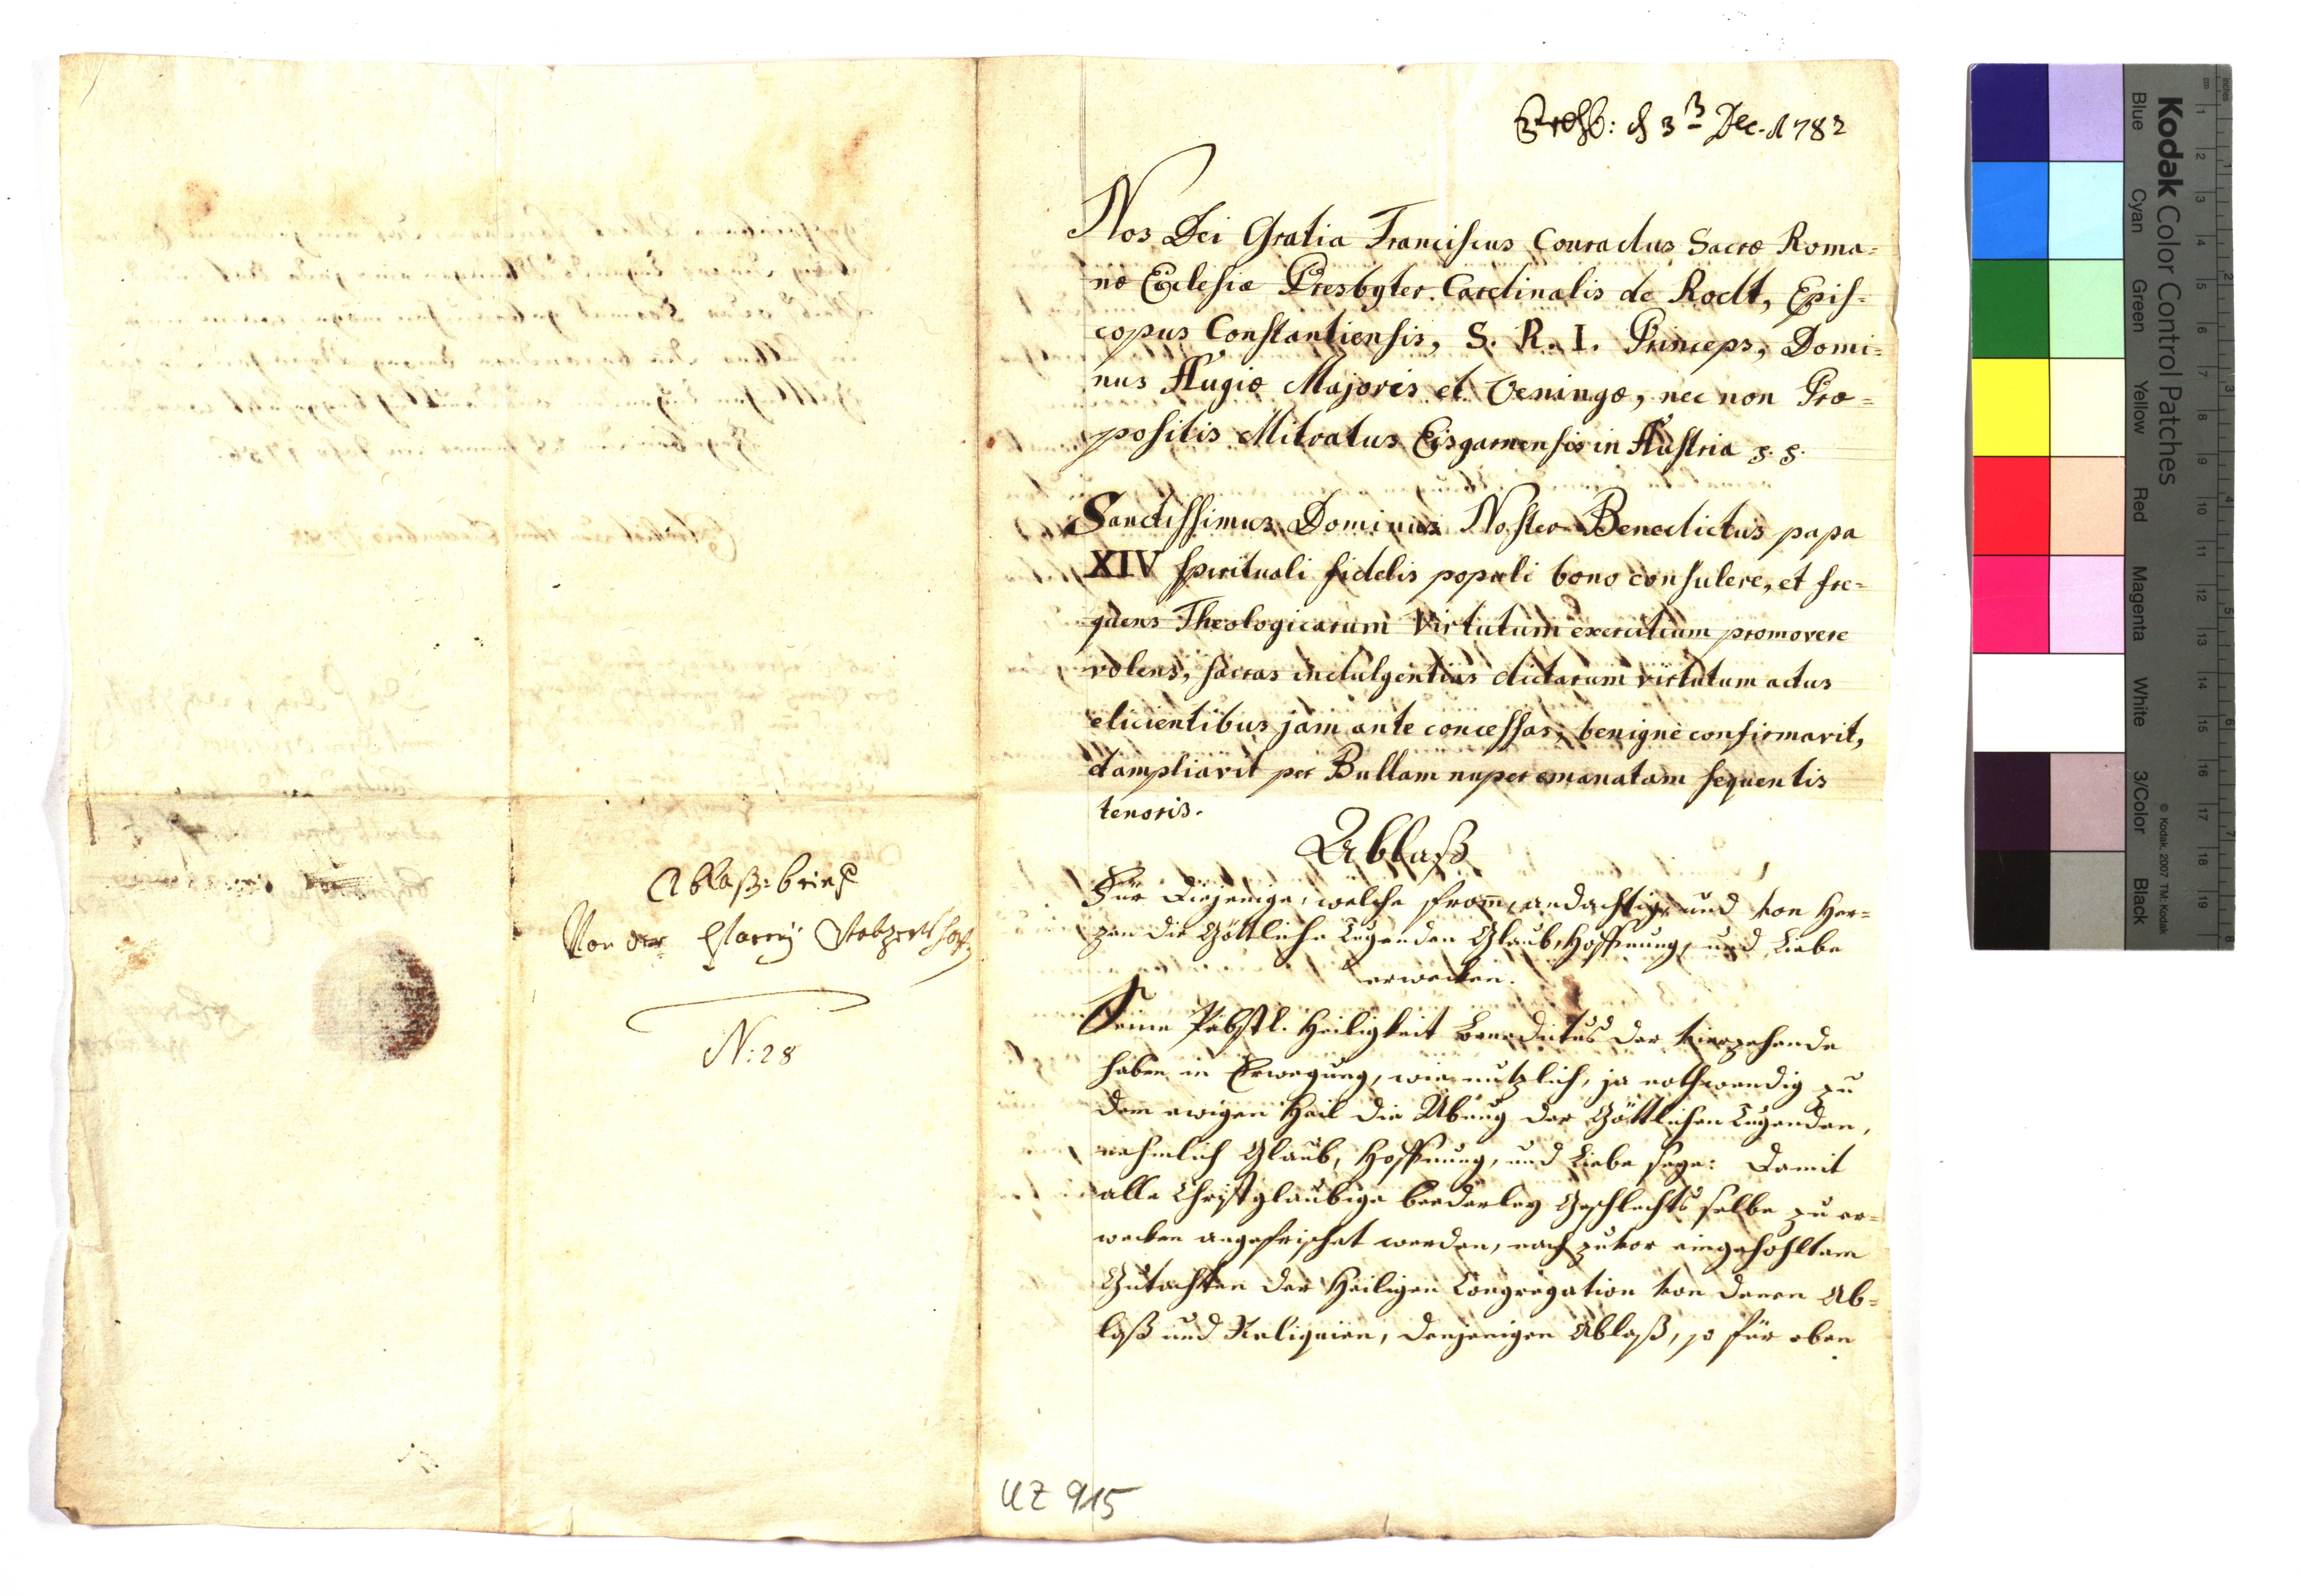 Ablaß-brief
Von der Pfarrey
N: 28
d 3 Dec. 1782
Nos Dei Gratia Franciscus Conradus Sacræ Roma=
næ Eclesiæ Presbyter Cardinalis de Rodt, Epis=
copus Constantiensis, S. R. I. Princeps, Domi=
nus Augiæ Majoris et Oeningæ, nec non Præ=
positis Mitratus Eisgarnensis in Austria
Sanctissimus Dominus Noster Benedictus papa
XIV spirituali fidelis populi bono consulere, et fre=
quens Theologicarum Virtutum exercitium promovere
volens, sacras indulgentias dictarum virtutum actus
elicientibus jam ante concessas, benigne confirmavit,
et ampliavit per Bullam nuper emanatam sequentis
tenoris.
Ablaß
Für Diejenige, welche from, andachtig, und von Her=
zen die Göttliche Tugenden Glaub, Hoffnung, und Liebe
erwecken.
Seine Päbstl. Heiligkeit Benedictus der vierzehende
haben in Erwegung, wie nutzlich, ja nothwendig zu
dem ewigen Heil die Übung der Göttlichen Tugenden,
nehmlich Glaub, Hoffnung, und Liebe seye: Damit
alle Christglaubige beederley Geschlechts selbe zu er=
wecken angefrischet werden, nach zuvor eingehohltem
Gutachten der Heiligen Congregation von denen Ab=
laß und Reliquien, denjenigen Ablaß, so für eben
UZ 915
Kodak Color Control Patches
© Kodak, 2007 TM: Kodak
Blue Cyan Green Yellow Red Magenta White 3/Color Black